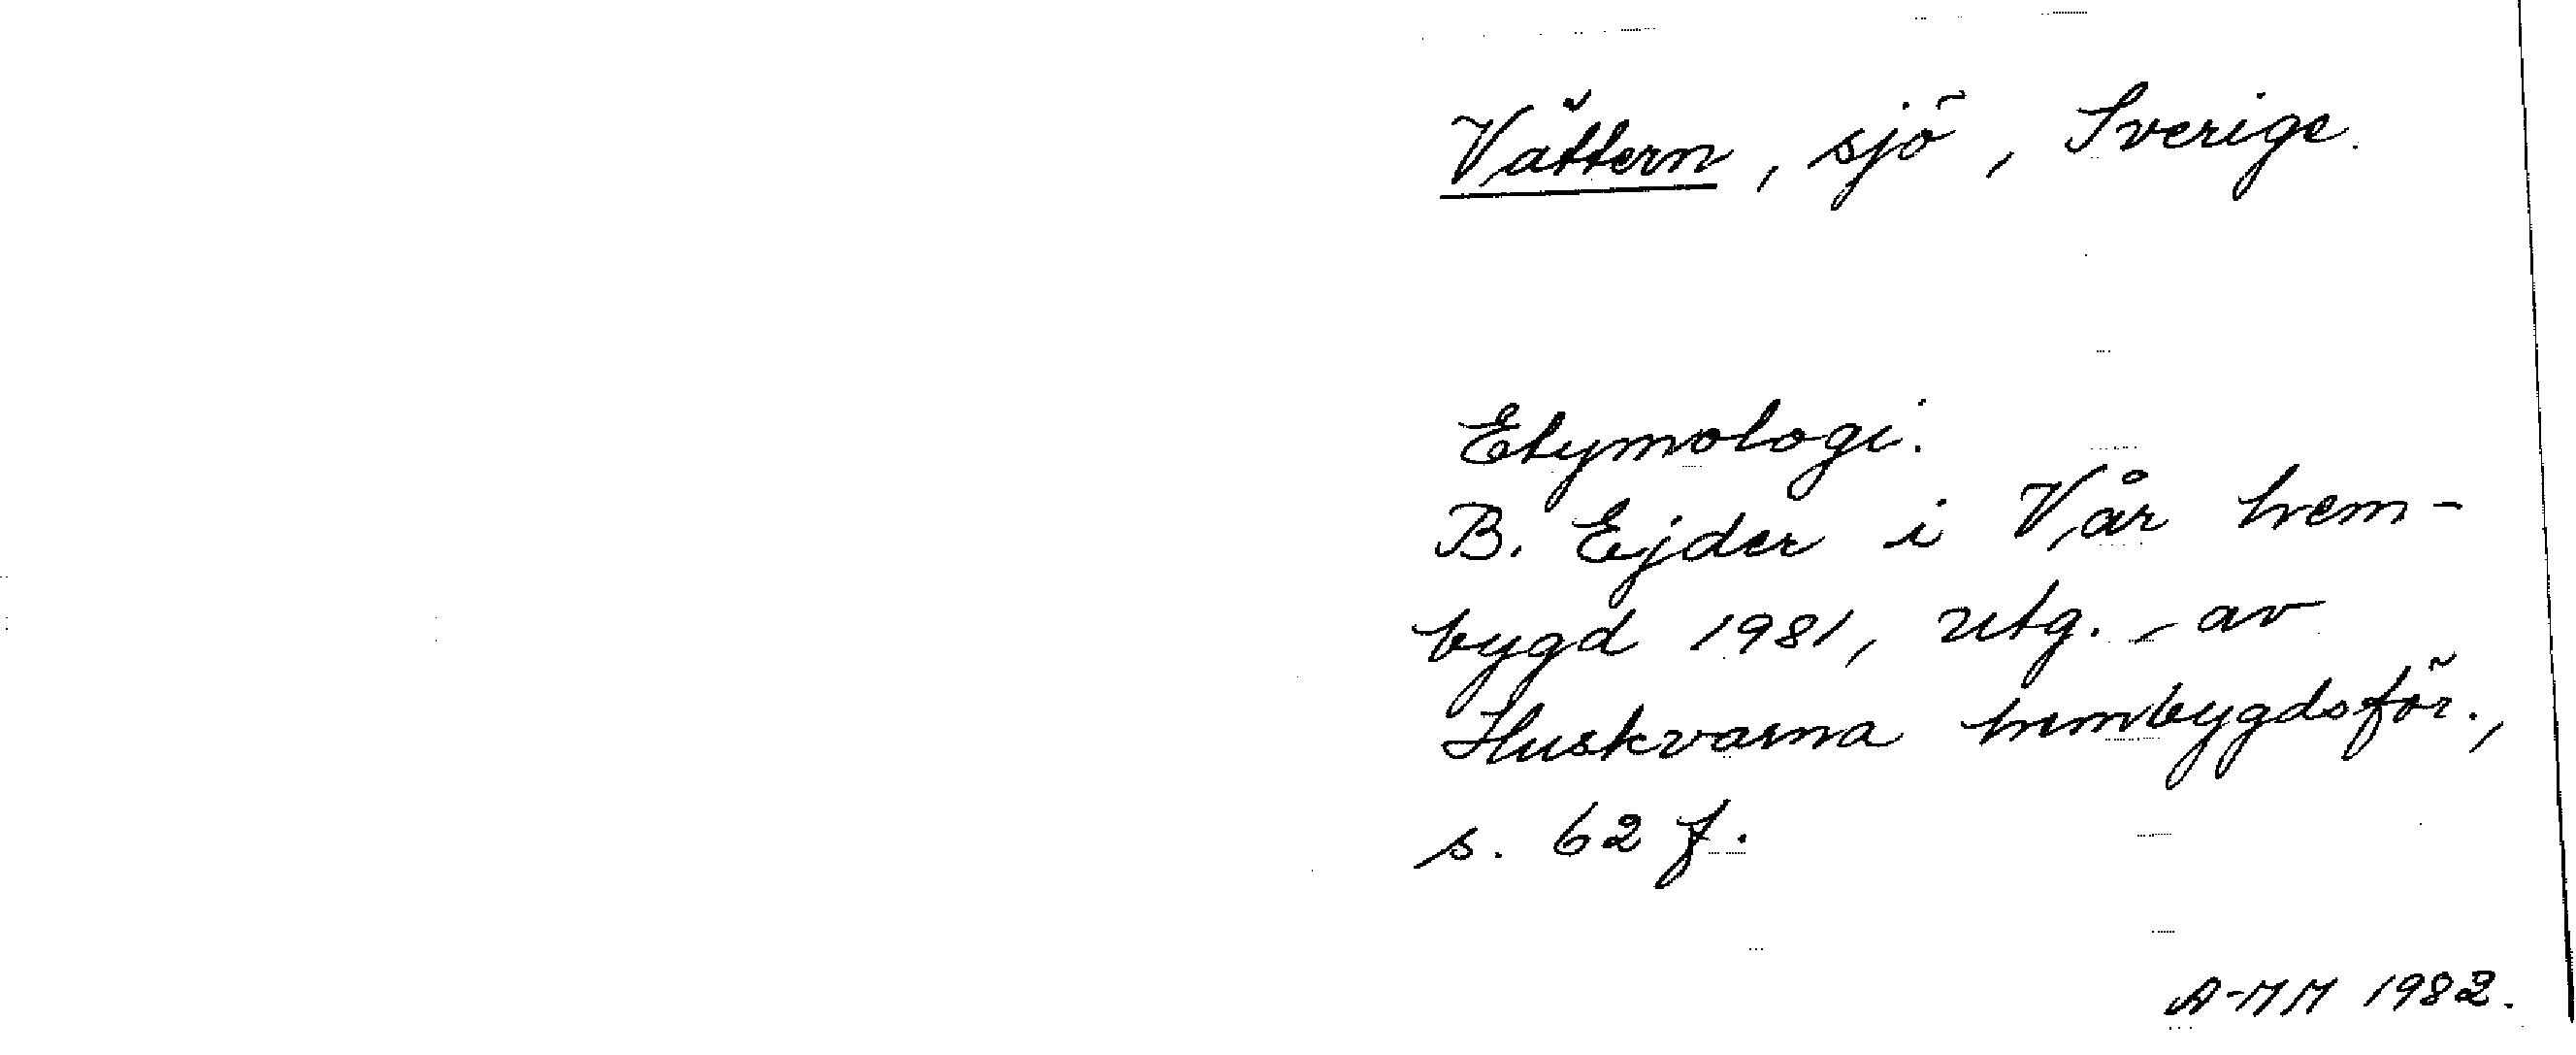 Vättern, sjö, Sverige.
Etymologi.
B. Ejder i Vår hem-
bygd 1981, utg. av
Huskvarna hembygdsför.,
s. 62 f.
A-MM 1982.